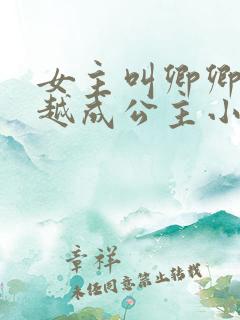 女主叫卿卿
越成公主小
章祥
未经同意禁止转载